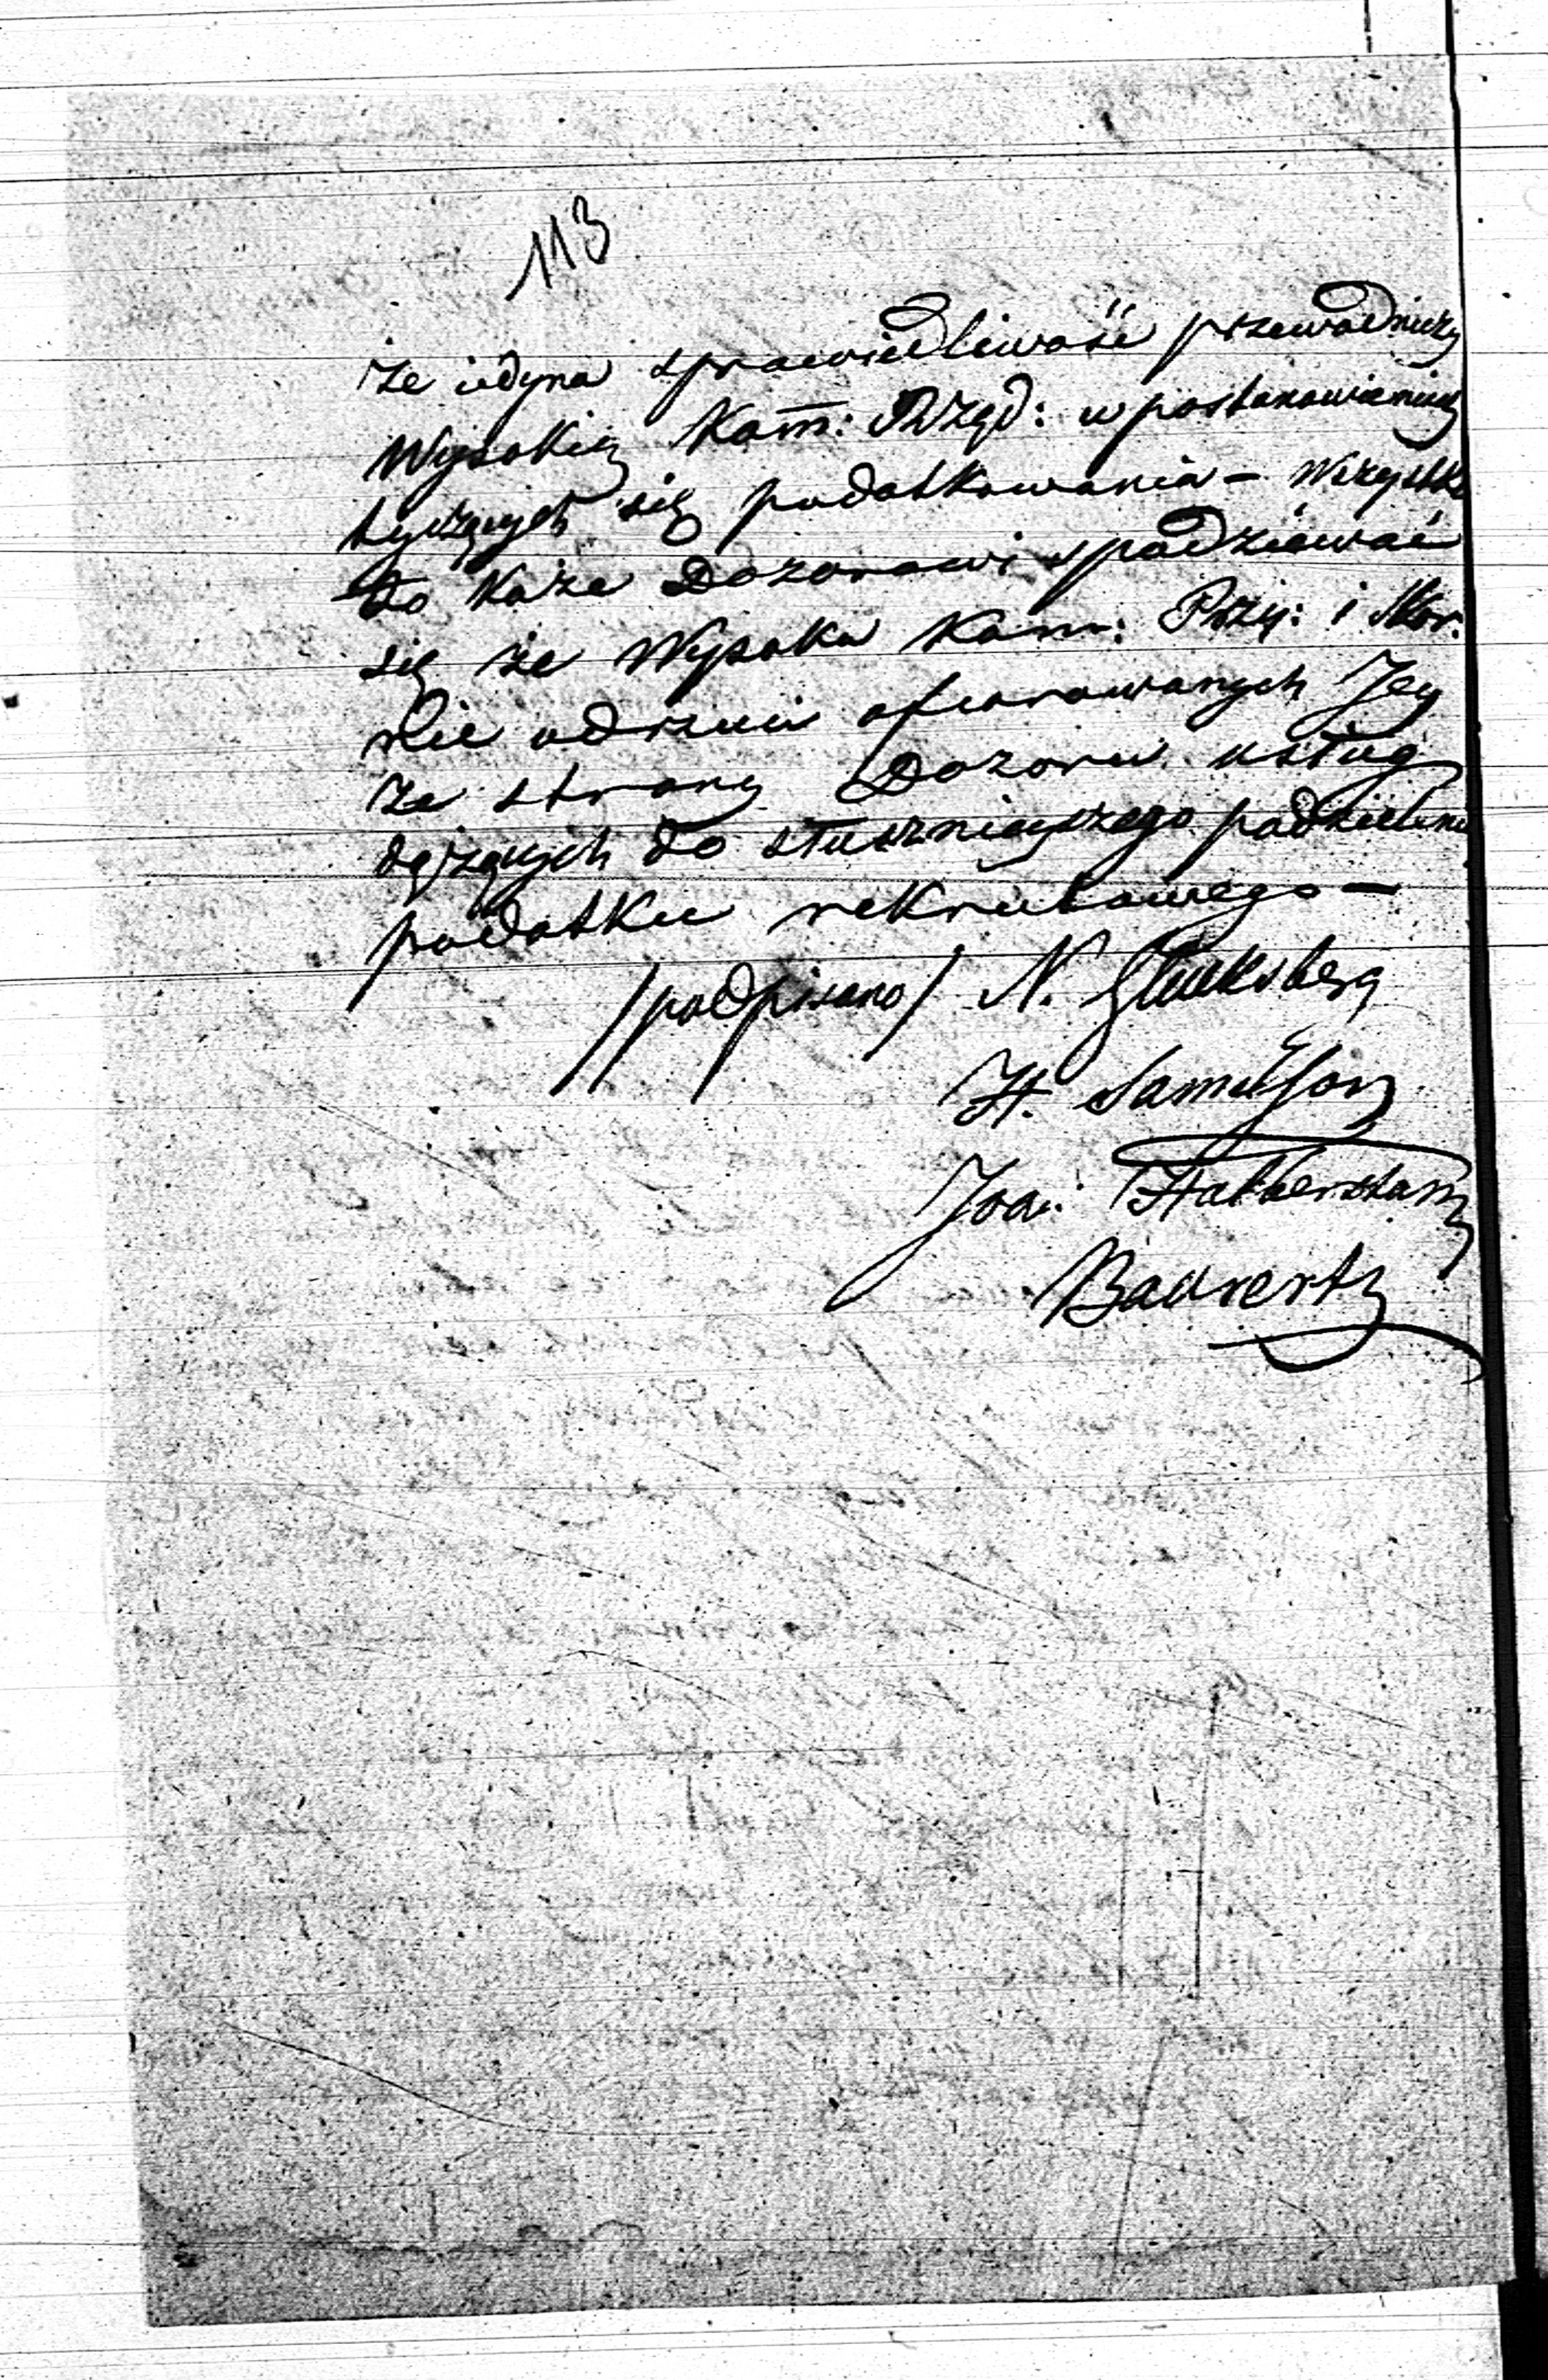 113
że iedyna sprawiedliwość przewodniczy
Wysokiey Kom: Rząd: w postanowieniach
tyczących się podatkowania – Wszystko
to każe Dozorowi spodziewać
się że Wysoka Kom: Przy: i Skar:
nie odrzuci ofiarowanych Jey
ze strony Dozoru usług
dążących do słusznieyszego podzielenia
podatku rekrutowego –
/podpisano/ N. Glucksberg
H. Samelson
Joa: Halberstam
Bauerertz